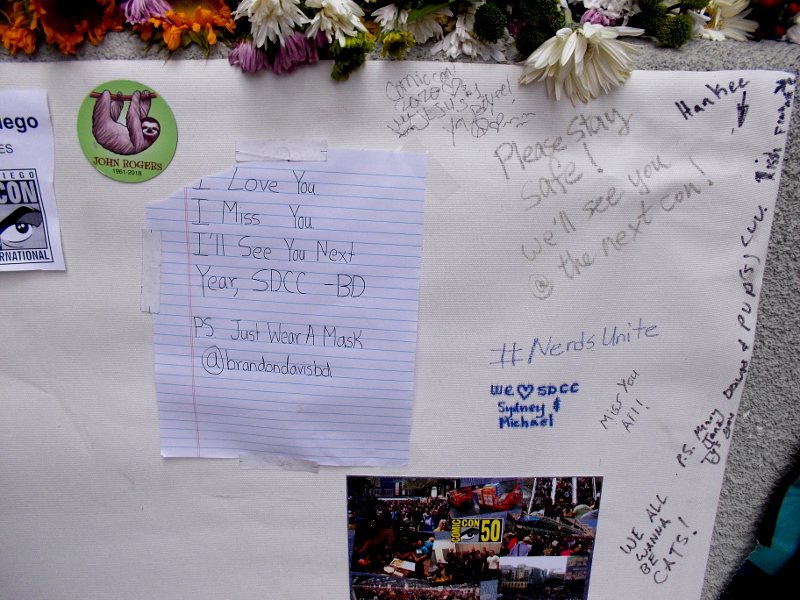 iego
ES
DIEGO
CON
ERNATIONAL
JOHN ROGERS
1961-2018
I Love You
I Miss You
I'll See You Next
Year, SDCC -BD
P.S. Just Wear A Mask
@brandondavisbd
Comiccon!
2020
Please Stay
Safe!
we'll see you
@ the next con!
Hankee
#NerdsUnite
We ♡ SDCC
Sydney &
Michael
Miss You
All!
P.S. Many
WE ALL
WANNA
BE
CATS!
COMIC CON 50